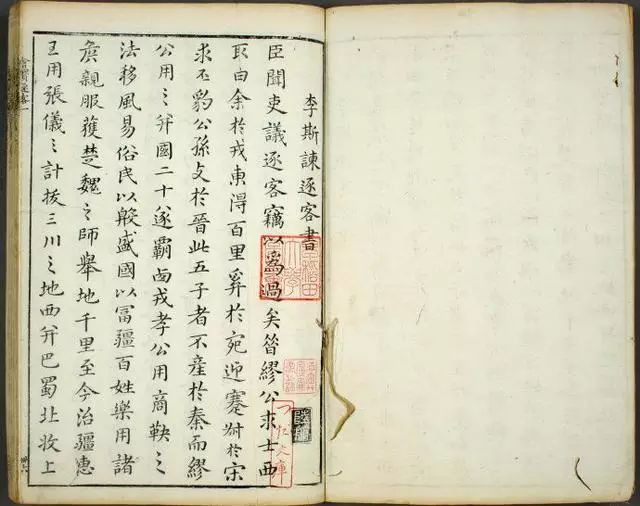 李斯諫逐客書
臣聞吏議逐客竊以爲過矣昔繆公求士西
取由余於戎東得百里奚於宛迎蹇叔於宋
求丕豹公孫支於晉此五子者不產於秦而繆
公用之并國二十遂霸西戎孝公用商鞅之
法移風易俗民以殷盛國以富疆百姓樂用諸
矦親服獲楚魏之師舉地千里至今治疆惠
王用張儀之計拔三川之地西并巴蜀北收上
早稻田
大學
圖書